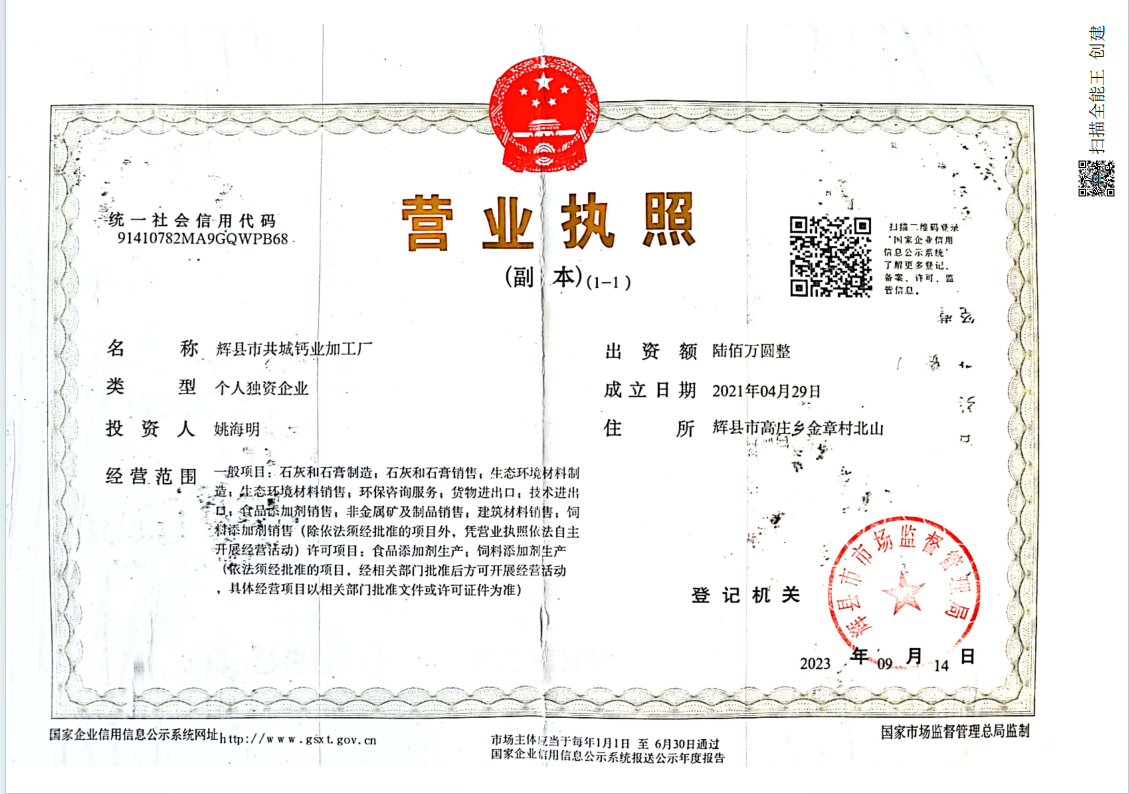 扫描全能王 创建
统一社会信用代码
91410782MA9GQWPB68
营业执照
(副 本)(1-1)
扫描二维码登录
'国家企业信用
信息公示系统'
了解更多登记、
备案、许可、监
管信息。
名 称 辉县市共城钙业加工厂
类 型 个人独资企业
投 资 人 姚海明
经营范围 一般项目：石灰和石膏制造；石灰和石膏销售；生态环境材料制
造；生态环境材料销售；环保咨询服务；货物进出口；技术进出
口；食品添加剂销售；非金属矿及制品销售；建筑材料销售；饲
料添加剂销售（除依法须经批准的项目外，凭营业执照依法自主
开展经营活动）许可项目：食品添加剂生产；饲料添加剂生产
（依法须经批准的项目，经相关部门批准后方可开展经营活动
，具体经营项目以相关部门批准文件或许可证件为准）
出 资 额 陆佰万圆整
成立日期 2021年04月29日
住 所 辉县市高庄乡金章村北山
登记机关
辉县市市场监督管理局
2023 年 09 月 14 日
国家企业信用信息公示系统网址http://www.gsxt.gov.cn
市场主体应当于每年1月1日 至 6月30日通过
国家企业信用信息公示系统报送公示年度报告
国家市场监督管理总局监制